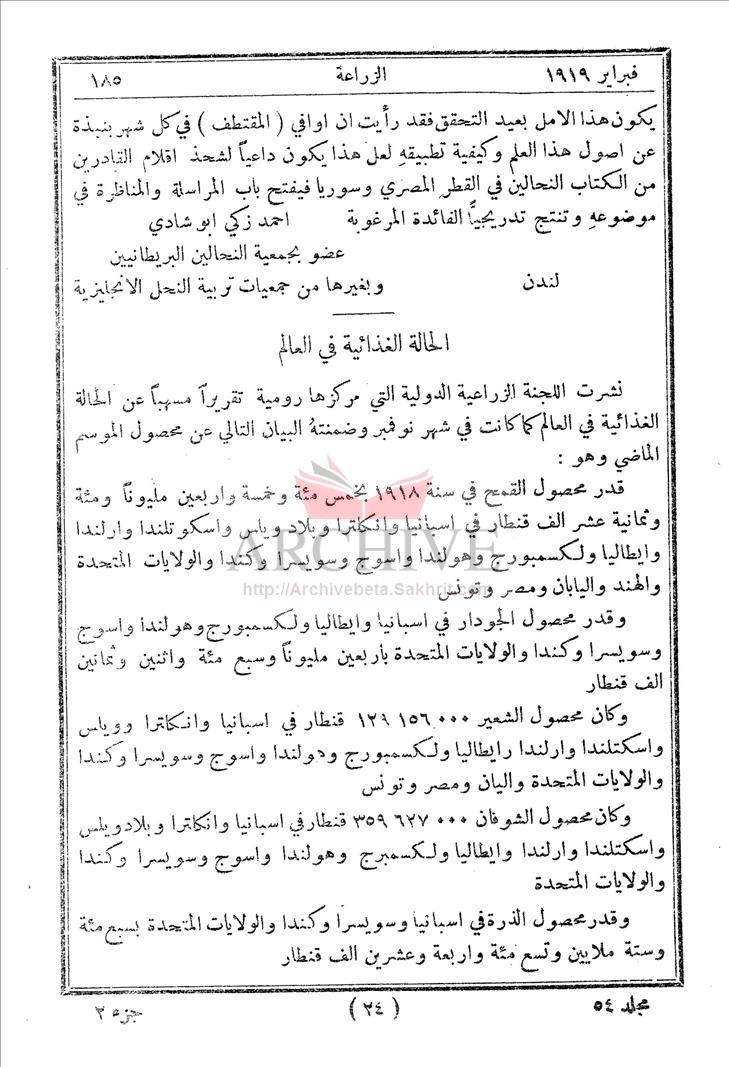 فبراير ١٩١٩ الزراعة ١٨٥
يكون هذا الامل بعيد التحقق فقد رأيت ان اوافي ( المقتطف ) في كل شهر بنبذة
عن اصول هذا العلم وكيفية تطبيقهِ لعل هذا يكون داعياً لشحذ اقلام القادرين
من الكتاب النحالين في القطر المصري وسوريا فيفتح باب المراسلة والمناظرة في
موضوعهِ وتنتج تدريجيًّا الفائدة المرغوبة احمد زكي ابو شادي
عضو بجمعية النحالين البريطانيين
لندن وبغيرها من جمعيات تربية النحل الانجليزية
الحالة الغذائية في العالم
نشرت اللجنة الزراعية الدولية التي مركزها رومية تقريراً مسهباً عن الحالة
الغذائية في العالم كما كانت في شهر نوفمبر وضمنتهُ البيان التالي عن محصول الموسم
الماضي وهو :
قدر محصول القمح في سنة ١٩١٨ بخمس مئة وخمسة واربعين مليوناً ومئة
وثمانية عشر الف قنطار في اسبانيا وانكلترا وبلاد ويلس واسكوتلندا وارلندا
وايطاليا ولكسمبورج وهولندا واسوج وسويسرا وكندا والولايات المتحدة
والهند واليابان ومصر وتونس
ARCHIVE
http://Archivebeta.Sakhrit.com
وقدر محصول الجودار في اسبانيا وايطاليا ولكسمبورج وهولندا واسوج
وسويسرا وكندا والولايات المتحدة باربعين مليوناً وسبع مئة واثنين وثمانين
الف قنطار
وكان محصول الشعير ١٢٩ ١٥٦ ٠٠٠ قنطار في اسبانيا وانكاترا وويلس
واسكتلندا وارلندا رايطاليا ولكسمبورج وهولندا واسوج وسويسرا وكندا
والولايات المتحدة واليان ومصر وتونس
وكان محصول الشوفان ٣٥٩ ٦٢٧ ٠٠٠ قنطار في اسبانيا وانكاترا وبلاد ويلس
واسكتلندا وارلندا وايطاليا ولكسمبرج وهولندا واسوج وسويسرا وكندا
والولايات المتحدة
وقدر محصول الذرة في اسبانيا وسويسرا وكندا والولايات المتحدة بسبع مئة
وستة ملايين وتسع مئة واربعة وعشرين الف قنطار
مجلد ٥٤ ( ٢٤ ) جزء ٢